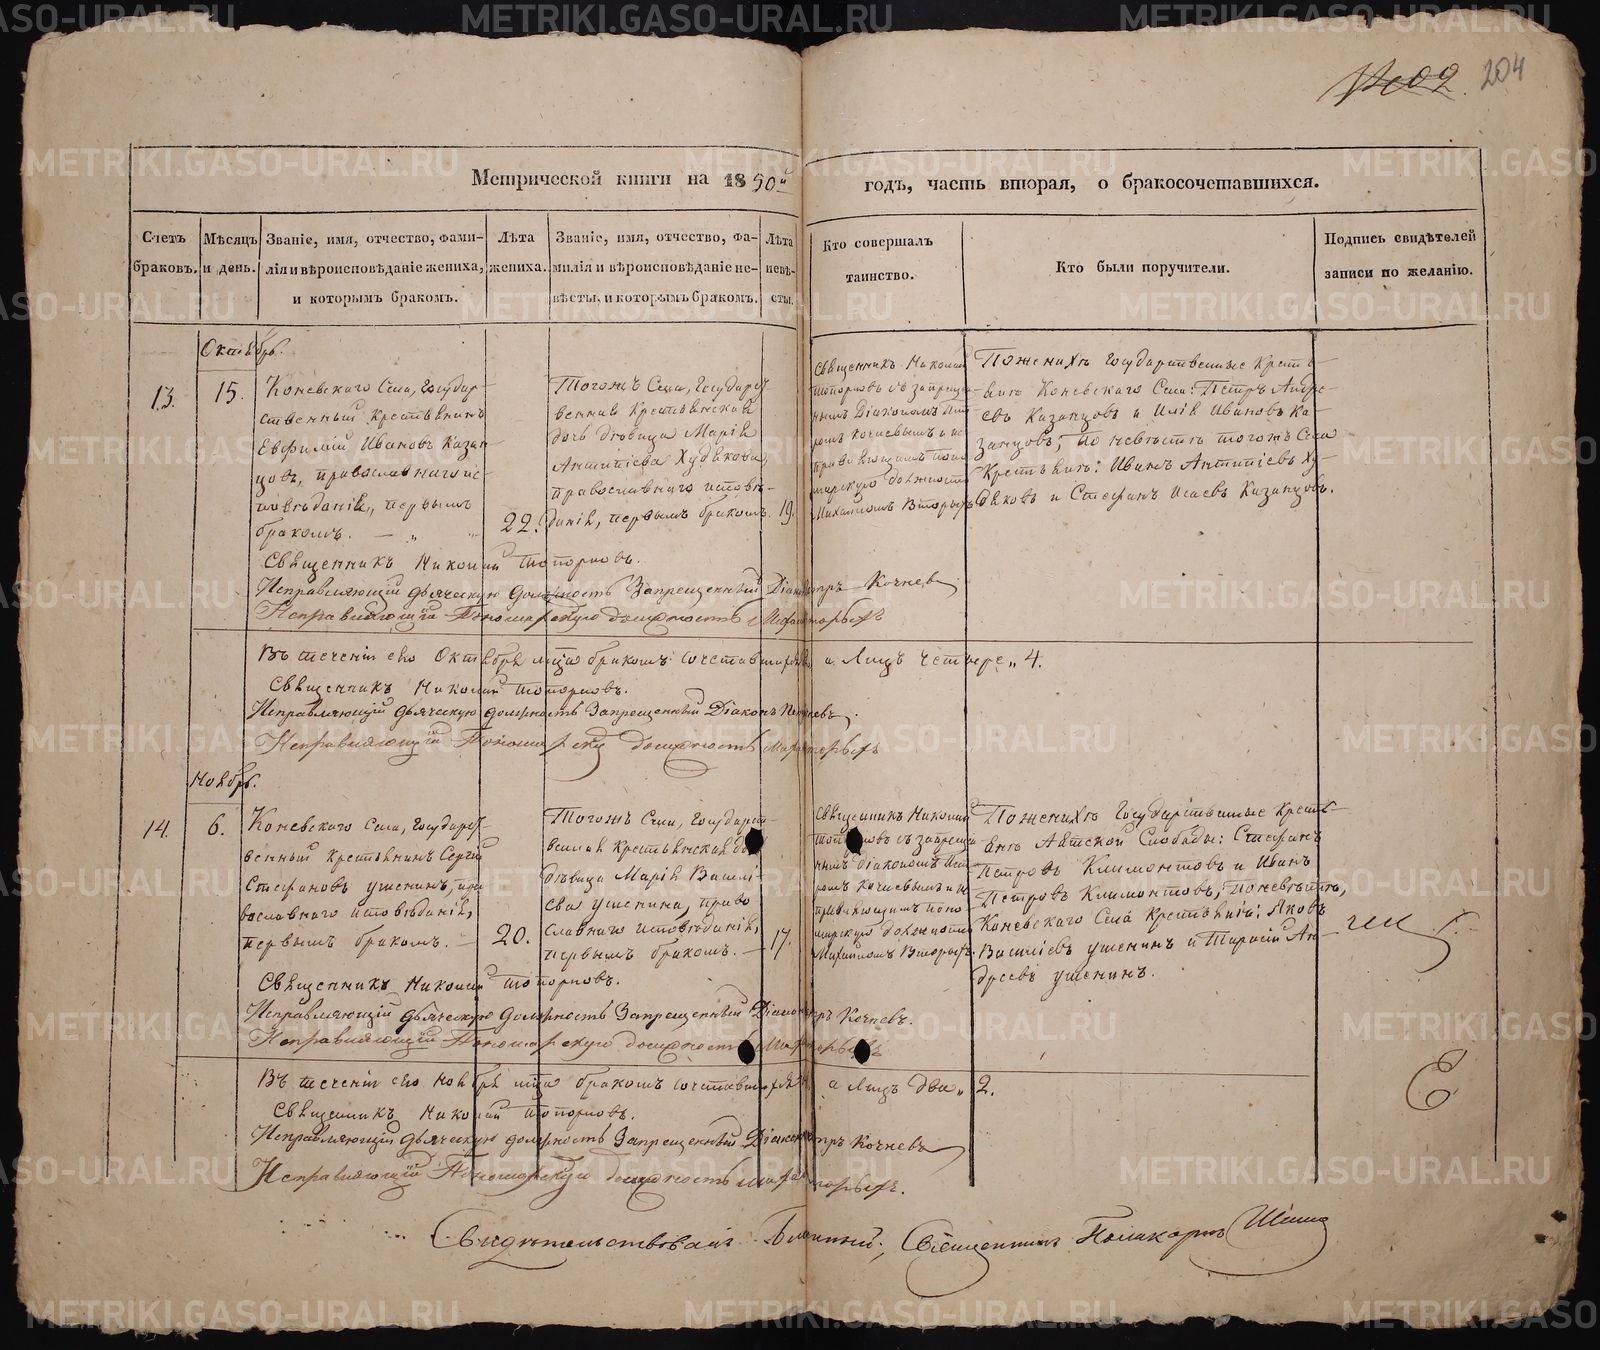 204
Метрической книги на 1850й годъ, часть вторая, о бракосочетавшихся.
Счетъ браковъ.
Мѣсяцъ и день.
Званіе, имя, отчество, фами-
лія и вѣроисповѣданіе жениха,
и которымъ бракомъ.
Лѣта
жениха.
Званіе, имя, отчество, фа-
милія и вѣроисповѣданіе не-
вѣсты, и которымъ бракомъ.
Лѣта
невѣ-
сты.
Кто совершалъ
таинство.
Кто были поручители.
Подпись свидѣтелей
записи по желанію.
Октябрь.
13.
15.
Коневскаго Села, Государ-
ственный крестьянинъ
Евфимій Ивановъ Казан-
цовъ, православнаго ис-
повѣданія, первымъ
бракомъ.
22.
Тогожъ Села, Государст-
венная Крестьянская
дочь дѣвица Марія
Антипіева Худякова,
православнаго исповѣ-
данія, первымъ бракомъ.
19.
Священникъ Николай
Топорковъ съ запрещен-
нымъ Діакономъ Пет-
ромъ Кочневымъ и ис-
правляющимъ поно-
марскую должность
Михайломъ Вторыхъ
По женихѣ Государственные Кресть-
яне Коневскаго Села: Петръ Андре-
евъ Казанцовъ и Илія Ивановъ Ка-
занцовъ; по невѣстѣ тогожъ Села
Крестьяне: Иванъ Антипіевъ Ху-
дяковъ и Стефанъ Исаевъ Казанцовъ.
Священникъ Николай Топорковъ.
Исправляющій дьяческую должность Запрещенный Діаконъ Петръ Кочневъ
Исправляющій Пономарскую должность Вторыхъ
Въ теченіи сего Октября мца бракомъ сочетавшихся а лицъ четыре „ 4.
Священникъ Николай Топорковъ.
Исправляющій дьяческую должность Запрещенный Діаконъ Кочневъ.
Исправляющій Пономарскую должность Вторыхъ
Ноябрь.
14.
6.
Коневскаго Села, Государст-
венный крестьянинъ Сергій
Стефановъ Ушенинъ, пра-
вославнаго исповѣданія,
первымъ бракомъ.
20.
Тогожъ Села, Государст-
венная крестьянская дочь
дѣвица Марія Василі-
ева Ушенина, право
славнаго исповѣданія,
первымъ бракомъ.
17.
Священникъ Николай
Топорковъ съ запрещен
нымъ діакономъ Пет
ромъ Кочневымъ и ис
правляющимъ поно-
марскую должность
Михайломъ Вторыхъ.
По женихѣ Государственные Кресть-
яне Аятской Слободы: Стефанъ
Петровъ Климонтовъ и Иванъ
Петровъ Климонтовъ; по невѣстѣ,
Коневскаго Села Крестьяне: Яковъ
Василіевъ Ушенинъ и Тарасій Ан
дреевъ Ушенинъ.
Священникъ Николай Топорковъ.
Исправляющій дьяческую должность Запрещенный Діаконъ Петръ Кочневъ.
Исправляющій Пономарскую должность Вторыхъ
Въ теченіи сего Ноября мца бракомъ сочетавшихся а лицъ два „ 2.
Священникъ Николай Топорковъ.
Исправляющій дьяческую должность Запрещенный Діаконъ Петръ Кочневъ
Исправляющій Пономарскую должность Вторыхъ.
Свидѣтельствовалъ Благочинный, Священникъ Поликарпъ
METRIKI.GASO-URAL.RU